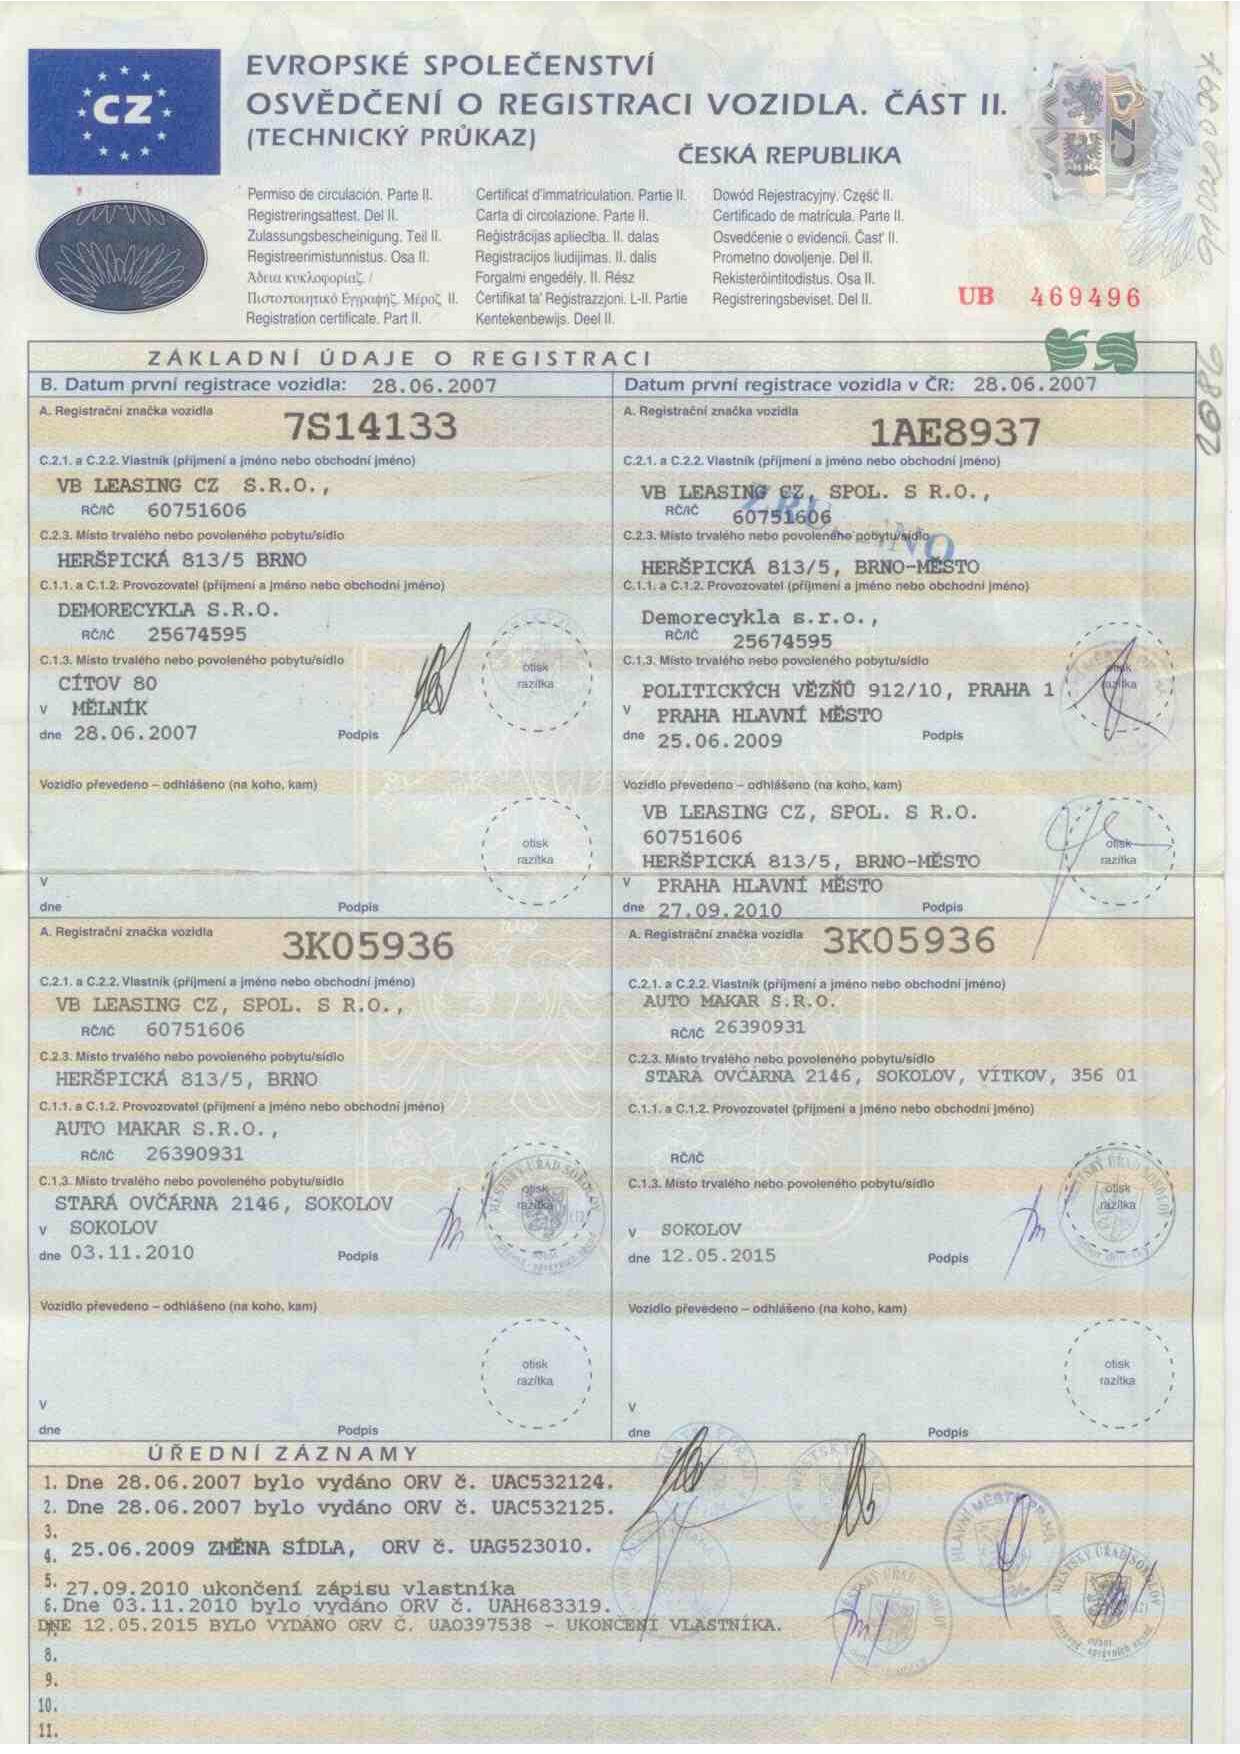 CZ
EVROPSKÉ SPOLEČENSTVÍ
OSVĚDČENÍ O REGISTRACI VOZIDLA. ČÁST II.
(TECHNICKÝ PRŮKAZ)
ČESKÁ REPUBLIKA
CZ
Permiso de circulación. Parte II.
Registreringsattest. Del II.
Zulassungsbescheinigung. Teil II.
Registreerimistunnistus. Osa II.
Άδεια κυκλοφορίας. /
Πιστοποιητικό Εγγραφής. Μέρος II.
Registration certificate. Part II.
Certificat d'immatriculation. Partie II.
Carta di circolazione. Parte II.
Reģistrācijas apliecība. II. dalas
Registracijos liudijimas. II. dalis
Forgalmi engedély. II. Rész
Ċertifikat ta' Reġistrazzjoni. L-II. Partie
Kentekenbewijs. Deel II.
Dowód Rejestracyjny. Część II.
Certificado de matrícula. Parte II.
Osvedčenie o evidencii. Časť II.
Prometno dovoljenje. Del II.
Rekisteröintitodistus. Osa II.
Registreringsbeviset. Del II.
UB 469496
ZÁKLADNÍ ÚDAJE O REGISTRACI
B. Datum první registrace vozidla: 28.06.2007
Datum první registrace vozidla v ČR: 28.06.2007
A. Registrační značka vozidla
7S14133
C.2.1. a C.2.2. Vlastník (příjmení a jméno nebo obchodní jméno)
VB LEASING CZ S.R.O.,
RČ/IČ 60751606
C.2.3. Místo trvalého nebo povoleného pobytu/sídlo
HERŠPICKÁ 813/5 BRNO
C.1.1. a C.1.2. Provozovatel (příjmení a jméno nebo obchodní jméno)
DEMORECYKLA S.R.O.
RČ/IČ 25674595
C.1.3. Místo trvalého nebo povoleného pobytu/sídlo
CÍTOV 80
v MĚLNÍK
dne 28.06.2007 Podpis
otisk
razítka
Vozidlo převedeno – odhlášeno (na koho, kam)
otisk
razítka
v
dne Podpis
A. Registrační značka vozidla
1AE8937
C.2.1. a C.2.2. Vlastník (příjmení a jméno nebo obchodní jméno)
VB LEASING CZ, SPOL. S R.O.,
RČ/IČ 60751606
C.2.3. Místo trvalého nebo povoleného pobytu/sídlo
HERŠPICKÁ 813/5, BRNO-MĚSTO
C.1.1. a C.1.2. Provozovatel (příjmení a jméno nebo obchodní jméno)
Demorecykla s.r.o.,
RČ/IČ 25674595
C.1.3. Místo trvalého nebo povoleného pobytu/sídlo
POLITICKÝCH VĚZŇŮ 912/10, PRAHA 1
v PRAHA HLAVNÍ MĚSTO
dne 25.06.2009 Podpis
otisk
razítka
Vozidlo převedeno – odhlášeno (na koho, kam)
VB LEASING CZ, SPOL. S R.O.
60751606
HERŠPICKÁ 813/5, BRNO-MĚSTO
v PRAHA HLAVNÍ MĚSTO
dne 27.09.2010 Podpis
otisk
razítka
A. Registrační značka vozidla
3K05936
C.2.1. a C.2.2. Vlastník (příjmení a jméno nebo obchodní jméno)
VB LEASING CZ, SPOL. S R.O.,
RČ/IČ 60751606
C.2.3. Místo trvalého nebo povoleného pobytu/sídlo
HERŠPICKÁ 813/5, BRNO
C.1.1. a C.1.2. Provozovatel (příjmení a jméno nebo obchodní jméno)
AUTO MAKAR S.R.O.,
RČ/IČ 26390931
C.1.3. Místo trvalého nebo povoleného pobytu/sídlo
STARÁ OVČÁRNA 2146, SOKOLOV
v SOKOLOV
dne 03.11.2010 Podpis
otisk
razítka
MĚSTSKÝ ÚŘAD SOKOLOV
Vozidlo převedeno – odhlášeno (na koho, kam)
otisk
razítka
v
dne Podpis
A. Registrační značka vozidla
3K05936
C.2.1. a C.2.2. Vlastník (příjmení a jméno nebo obchodní jméno)
AUTO MAKAR S.R.O.
RČ/IČ 26390931
C.2.3. Místo trvalého nebo povoleného pobytu/sídlo
STARÁ OVČÁRNA 2146, SOKOLOV, VÍTKOV, 356 01
C.1.1. a C.1.2. Provozovatel (příjmení a jméno nebo obchodní jméno)
RČ/IČ
C.1.3. Místo trvalého nebo povoleného pobytu/sídlo
v SOKOLOV
dne 12.05.2015 Podpis
otisk
razítka
Vozidlo převedeno – odhlášeno (na koho, kam)
otisk
razítka
v
dne Podpis
ÚŘEDNÍ ZÁZNAMY
1. Dne 28.06.2007 bylo vydáno ORV č. UAC532124.
2. Dne 28.06.2007 bylo vydáno ORV č. UAC532125.
3.
4. 25.06.2009 ZMĚNA SÍDLA, ORV č. UAG523010.
5. 27.09.2010 ukončení zápisu vlastníka
6. Dne 03.11.2010 bylo vydáno ORV č. UAH683319.
DNE 12.05.2015 BYLO VYDÁNO ORV Č. UAO397538 - UKONČENÍ VLASTNÍKA.
7.
8.
9.
10.
11.
HLAVNÍ MĚSTO PRAHA
MĚSTSKÝ ÚŘAD SOKOLOV